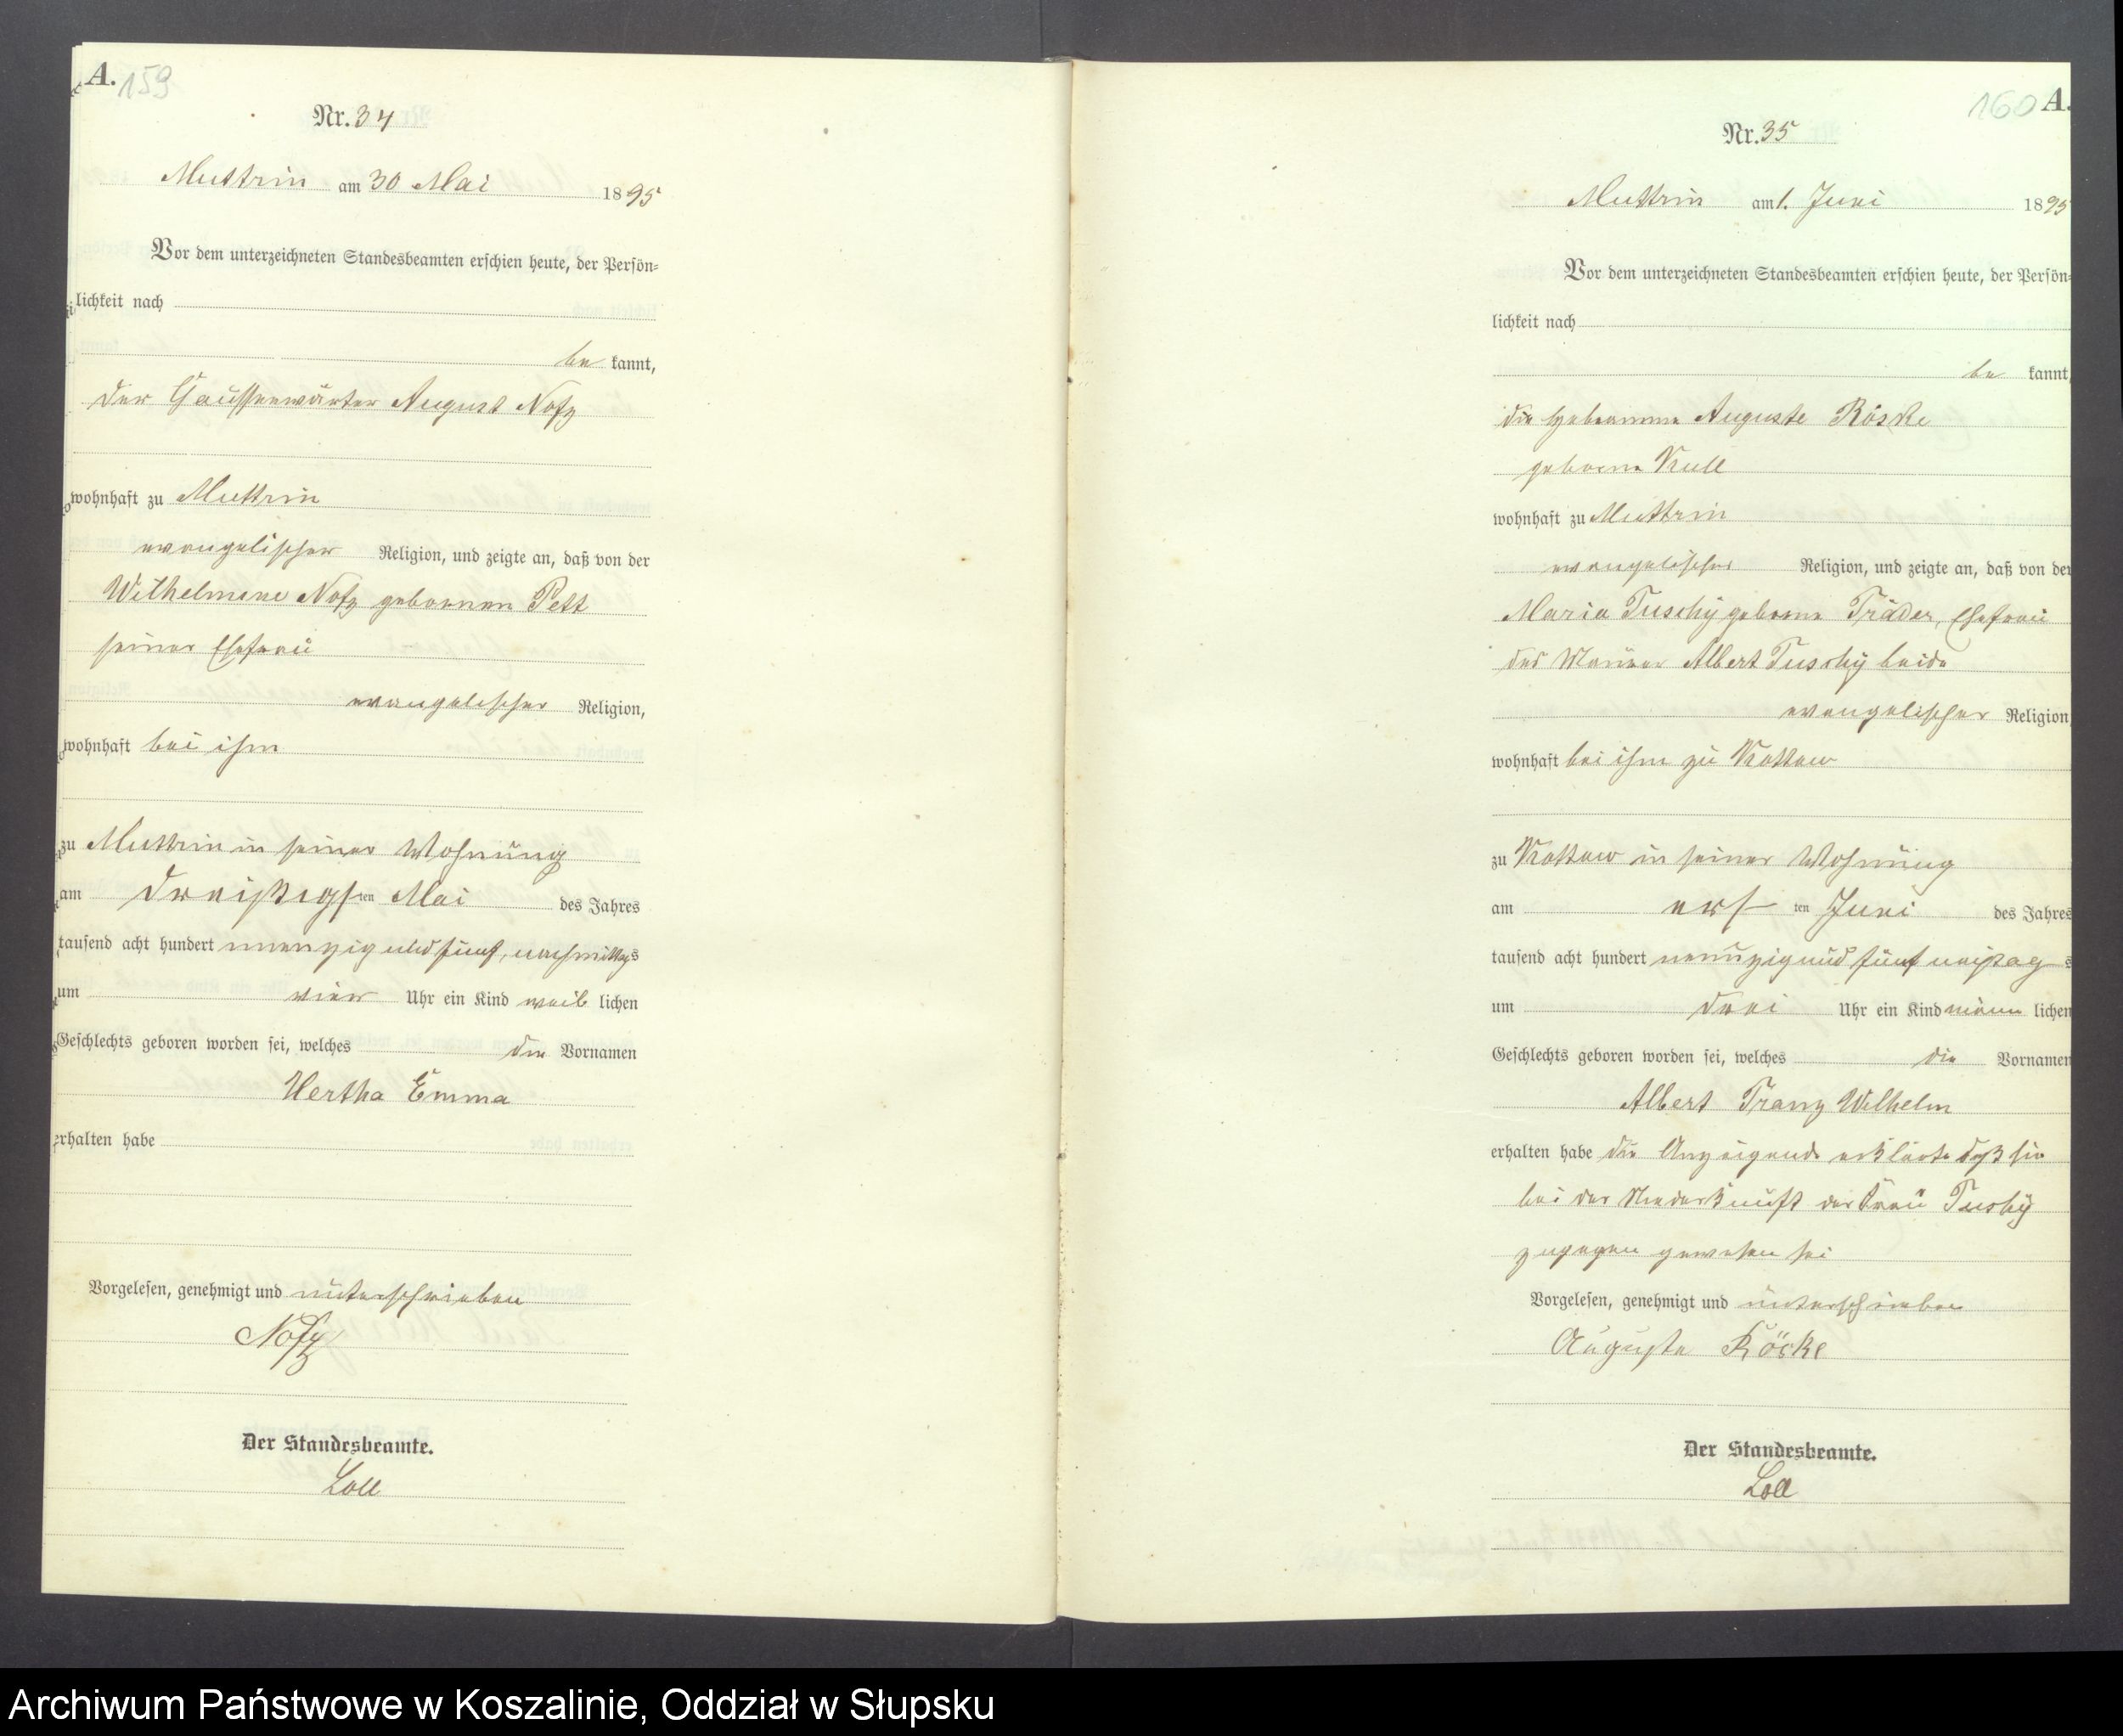 A. 159
Nr. 34
Muttrin am 30 Mai 1895
Vor dem unterzeichneten Standesbeamten erschien heute, der Persön-
lichkeit nach
be kannt,
der Chausseewärter August Notz
wohnhaft zu Muttrin
evangelischer Religion, und zeigte an, daß von der
Wilhelmine Notz geborenen Pett
seiner Ehefrau
evangelischer Religion,
wohnhaft bei ihm
zu Muttrin in seiner Wohnung
am dreißigsten Mai des Jahres
tausend acht hundert neunzig und fünf, nachmittags
um vier Uhr ein Kind weib lichen
Geschlechts geboren worden sei, welches die Vornamen
Hertha Emma
erhalten habe
Vorgelesen, genehmigt und unterschrieben
Notz
Der Standesbeamte.
Loll
160 A.
Nr. 35
Muttrin am 1. Juni 1895
Vor dem unterzeichneten Standesbeamten erschien heute, der Persön-
lichkeit nach
be kannt,
die Hebamme Auguste Röske
geborne Kull
wohnhaft zu Muttrin
evangelischer Religion, und zeigte an, daß von der
Maria Tuschy geborne Träder, Ehefrau
des Maurer Albert Tuschy beide
evangelischer Religion
wohnhaft bei ihm zu Kottow
zu Kottow in seiner Wohnung
am ersten Juni des Jahres
tausend acht hundert neunzig und fünf
um drei Uhr ein Kind männ lichen
Geschlechts geboren worden sei, welches die Vornamen
Albert Franz Wilhelm
erhalten habe die Anzeigende erklärte daß sie
bei der Niederkunft der Frau Tuschy
zugegen gewesen sei
Vorgelesen, genehmigt und unterschrieben
Auguste Röske
Der Standesbeamte.
Loll
Archiwum Państwowe w Koszalinie, Oddział w Słupsku